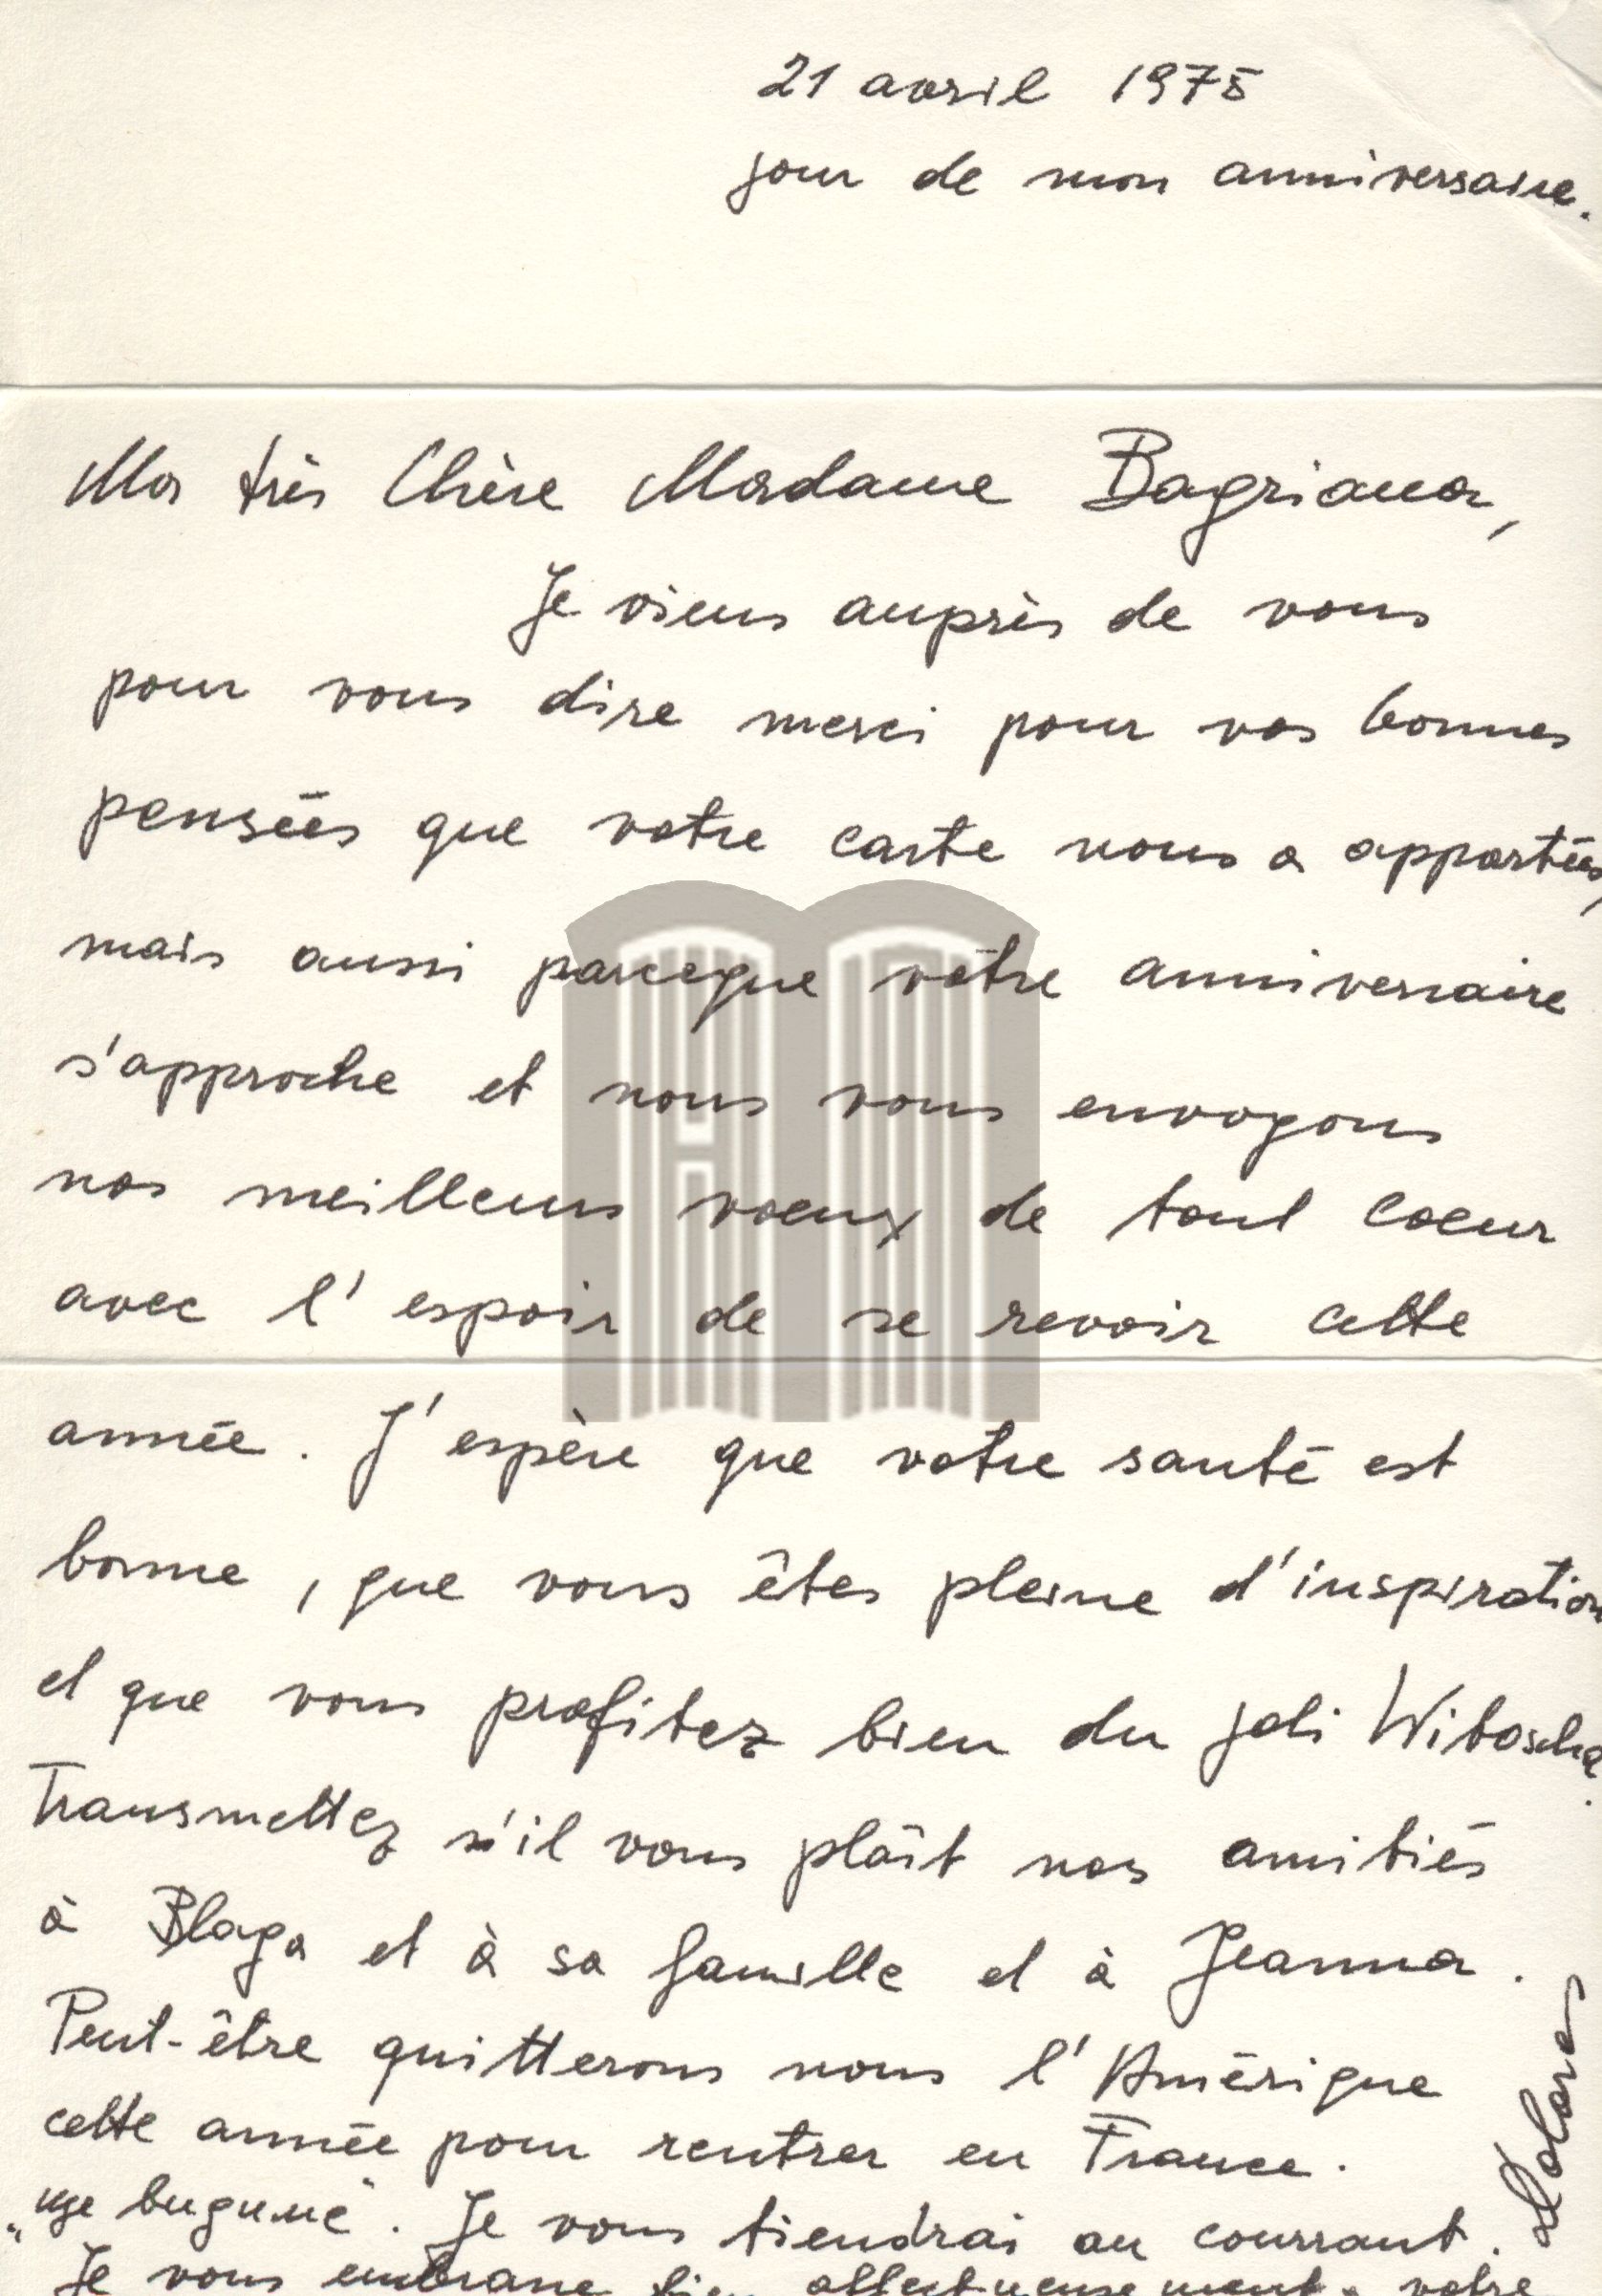 21 avril 1975
jour de mon anniversaire.
Ma très Chère Madame Bagriana,
Je viens auprès de vous
pour vous dire merci pour vos bonnes
pensées que votre carte nous a apportées,
mais aussi parceque vôtre anniversaire
s'approche et nous vous envoyons
nos meilleurs voeux de tout coeur
avec l'espoir de se revoir cette
année. J'espère que votre santé est
bonne, que vous êtes pleine d'inspiration
et que vous profitez bien du joli Witoscha.
Transmettez s'il vous plâit nos amitiés
à Blaga et à sa famille et à Jeanna.
Peut-être quitterons nous l'Amérique
cette année pour rentrer en France.
"ще видиме". Je vous tiendrai au courrant.
Je vous embrasse bien affectueusement, votre
Dolores